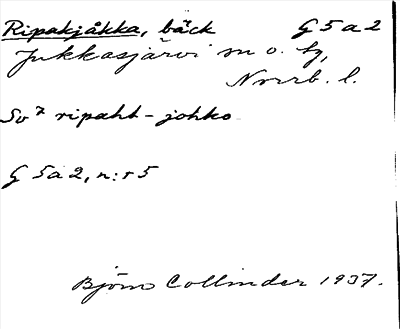 Ripakjåkka, bäck G5a2
Jukkasjärvi sn o. tg,
Norrb. l.
ripaht-johko
G5a2, n:r 5
Björn Collinder 1937.